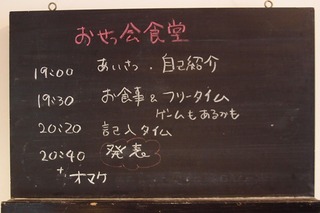 おせっ会食堂
19:00 あいさつ・自己紹介
19:30 お食事&フリータイム
ゲームもあるかも
20:20 記入タイム
20:40 発表
+オマケ